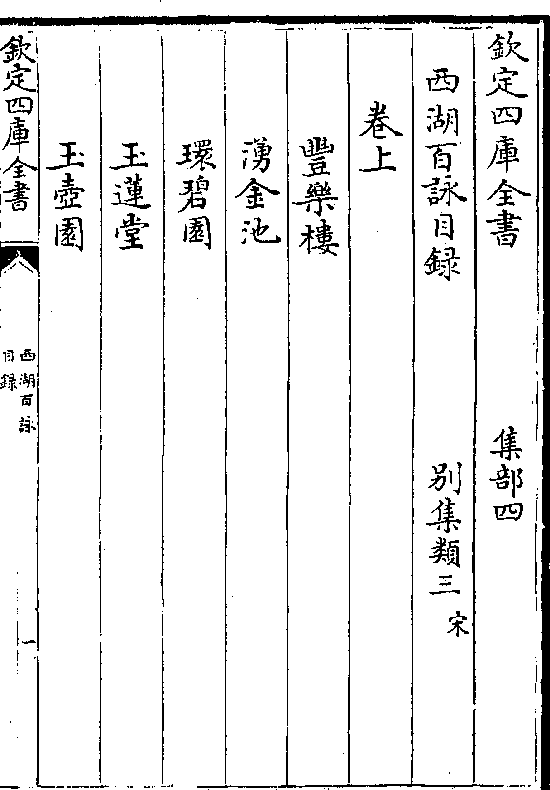 欽定四庫全書　集部四
西湖百詠目録　别集類三宋
卷上
豐樂樓
湧金池
環碧園
玉蓮堂
玉壺園
欽定四庫全書
西湖百詠
目録
一